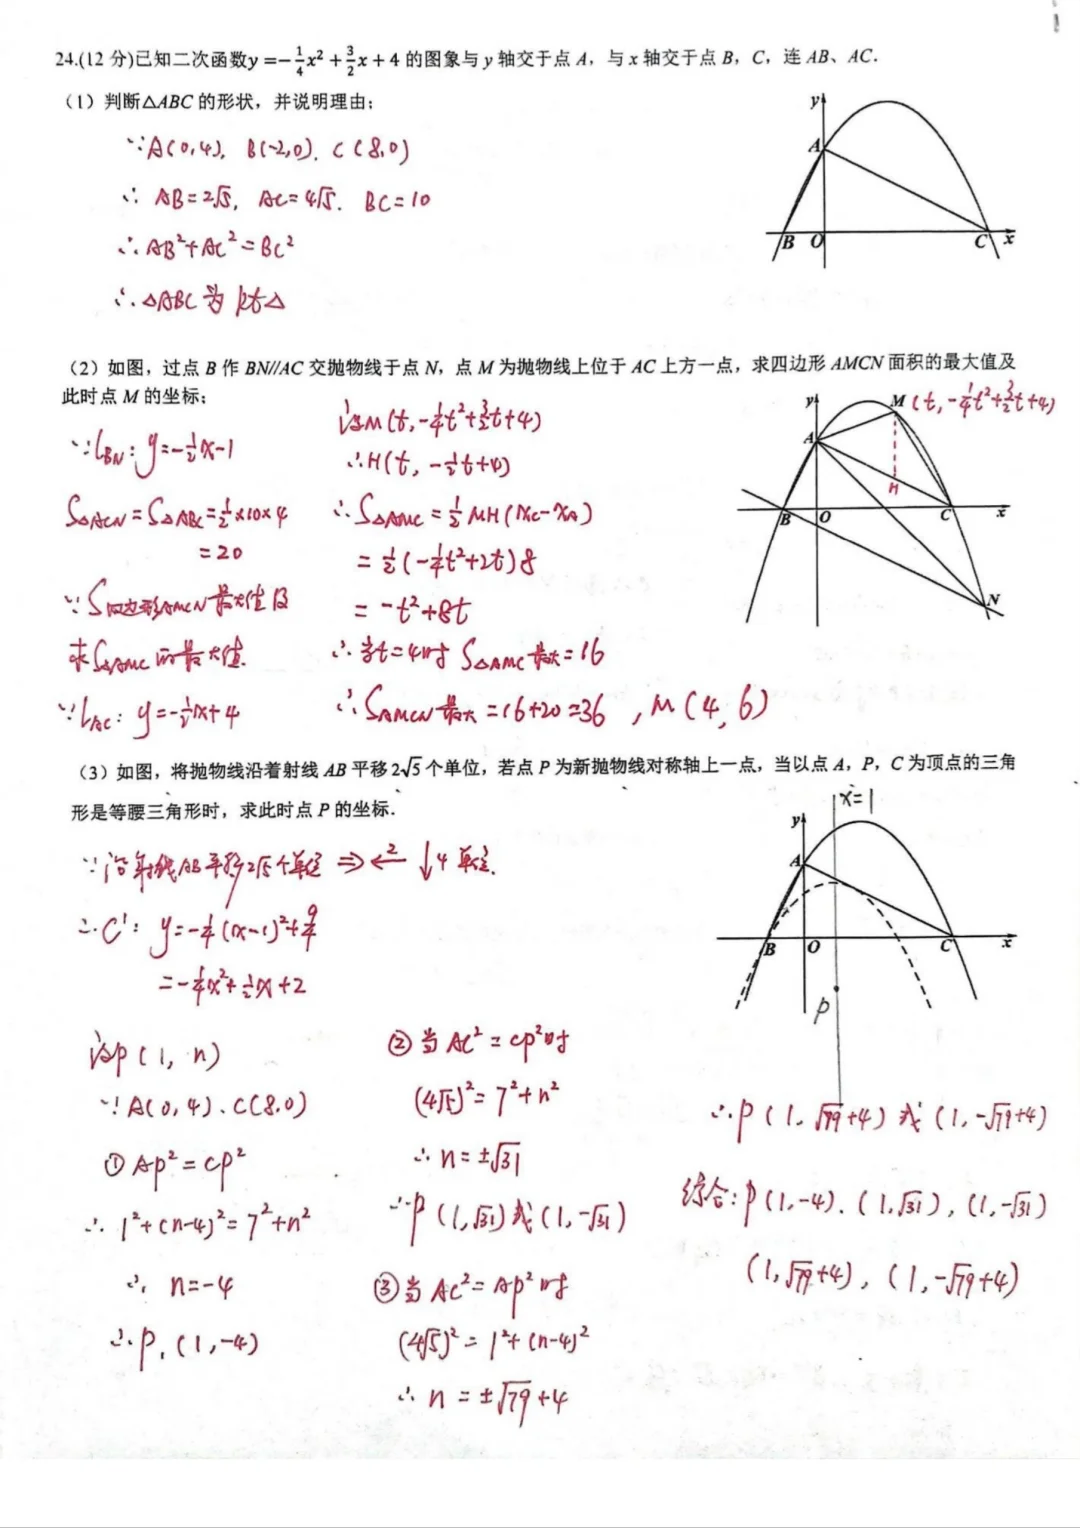 24.(12 分)已知二次函数y =−1/4x² + 3/2x + 4 的图象与 y 轴交于点 A，与 x 轴交于点 B，C，连 AB、AC.
（1）判断△ABC 的形状，并说明理由；
∵A(0,4), B(-2,0), C(8,0)
∴ AB=2√5, AC=4√5. BC=10
∴AB²+AC²=BC²
∴△ABC为Rt△
y
A
B O C x
（2）如图，过点 B 作 BN//AC 交抛物线于点 N，点 M 为抛物线上位于 AC 上方一点，求四边形 AMCN 面积的最大值及
此时点 M 的坐标；
∵L_BN: y=-1/2x-1
S△ACN=S△ABC=1/2×10×4
=20
∵S四边形AMCN最大值及
求S△AMC的最大值.
∵L_AC: y=-1/2x+4
设M(t,-1/4t²+3/2t+4)
∴H(t, -1/2t+4)
∴S△AMC=1/2MH(x_C-x_A)
=1/2(-1/4t²+2t)8
=-t²+8t
∴当t=4时 S△AMC最大=16
∴S_AMCN最大=16+20=36 , M(4,6)
y
M(t,-1/4t²+3/2t+4)
A
H
B O C x
N
（3）如图，将抛物线沿着射线 AB 平移 2√5 个单位，若点 P 为新抛物线对称轴上一点，当以点 A，P，C 为顶点的三角
形是等腰三角形时，求此时点 P 的坐标.
∵沿射线AB平移2√5个单位 ⇒ ←2 ↓4 单位.
∴C': y=-1/4(x-1)²+9/4
=-1/4x²+1/2x+2
x=1
y
A
B O C x
P
设P(1, n)
∵A(0,4)、C(8,0)
① AP²=CP²
∴ 1²+(n-4)²=7²+n²
∴ n=-4
∴P₁(1,-4)
②当AC²=CP²时
(4√5)²=7²+n²
∴n=±√31
∴P(1,√31)或(1,-√31)
③当AC²=AP²时
(4√5)²=1²+(n-4)²
∴n=±√79+4
∴P(1,√79+4)或(1,-√79+4)
综合:P(1,-4).(1,√31),(1,-√31)
(1,√79+4),(1,-√79+4)